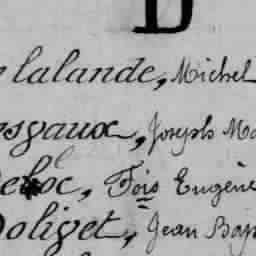 D
lalande, Michel
esgaux, Joseph Ma
eloc, Fois Eugène
Doliget, Jean Bap